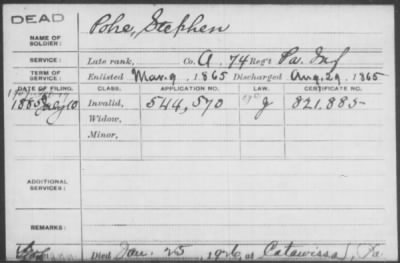 DEAD
NAME OF SOLDIER: Pohe, Stephen
SERVICE: Late rank, Co. A. 74 Reg't Pa. Inf
TERM OF SERVICE: Enlisted Mar. 9, 1865 Discharged Aug. 29, 1865
DATE OF FILING. CLASS. APPLICATION NO. LAW. CERTIFICATE NO.
1885 July 10 Invalid, 544,570 821.885
Widow,
Minor,
ADDITIONAL SERVICES:
REMARKS:
Died Jan. 25, 1926, at Catawissa, Pa